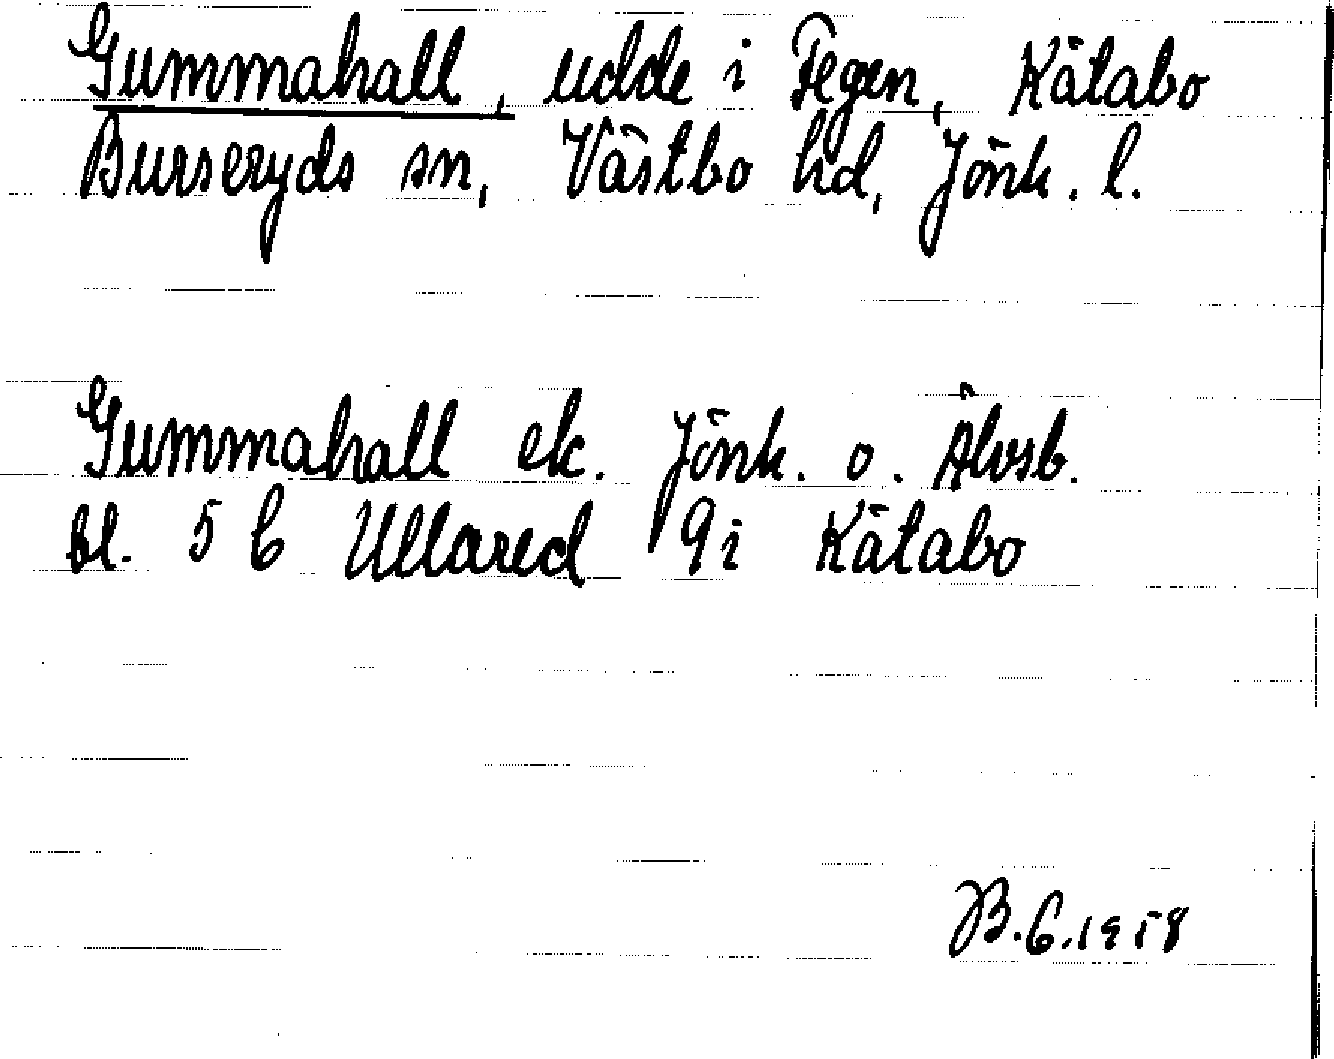 Gummahall, udde i Fegen, Kätabo
Burseryds sn, Västbo hd, Jönk. l.
Gummahall ek. Jönk. o. Älvsb.
bl. 5 C Ullared 9 i Kätabo
B. 6. 1958